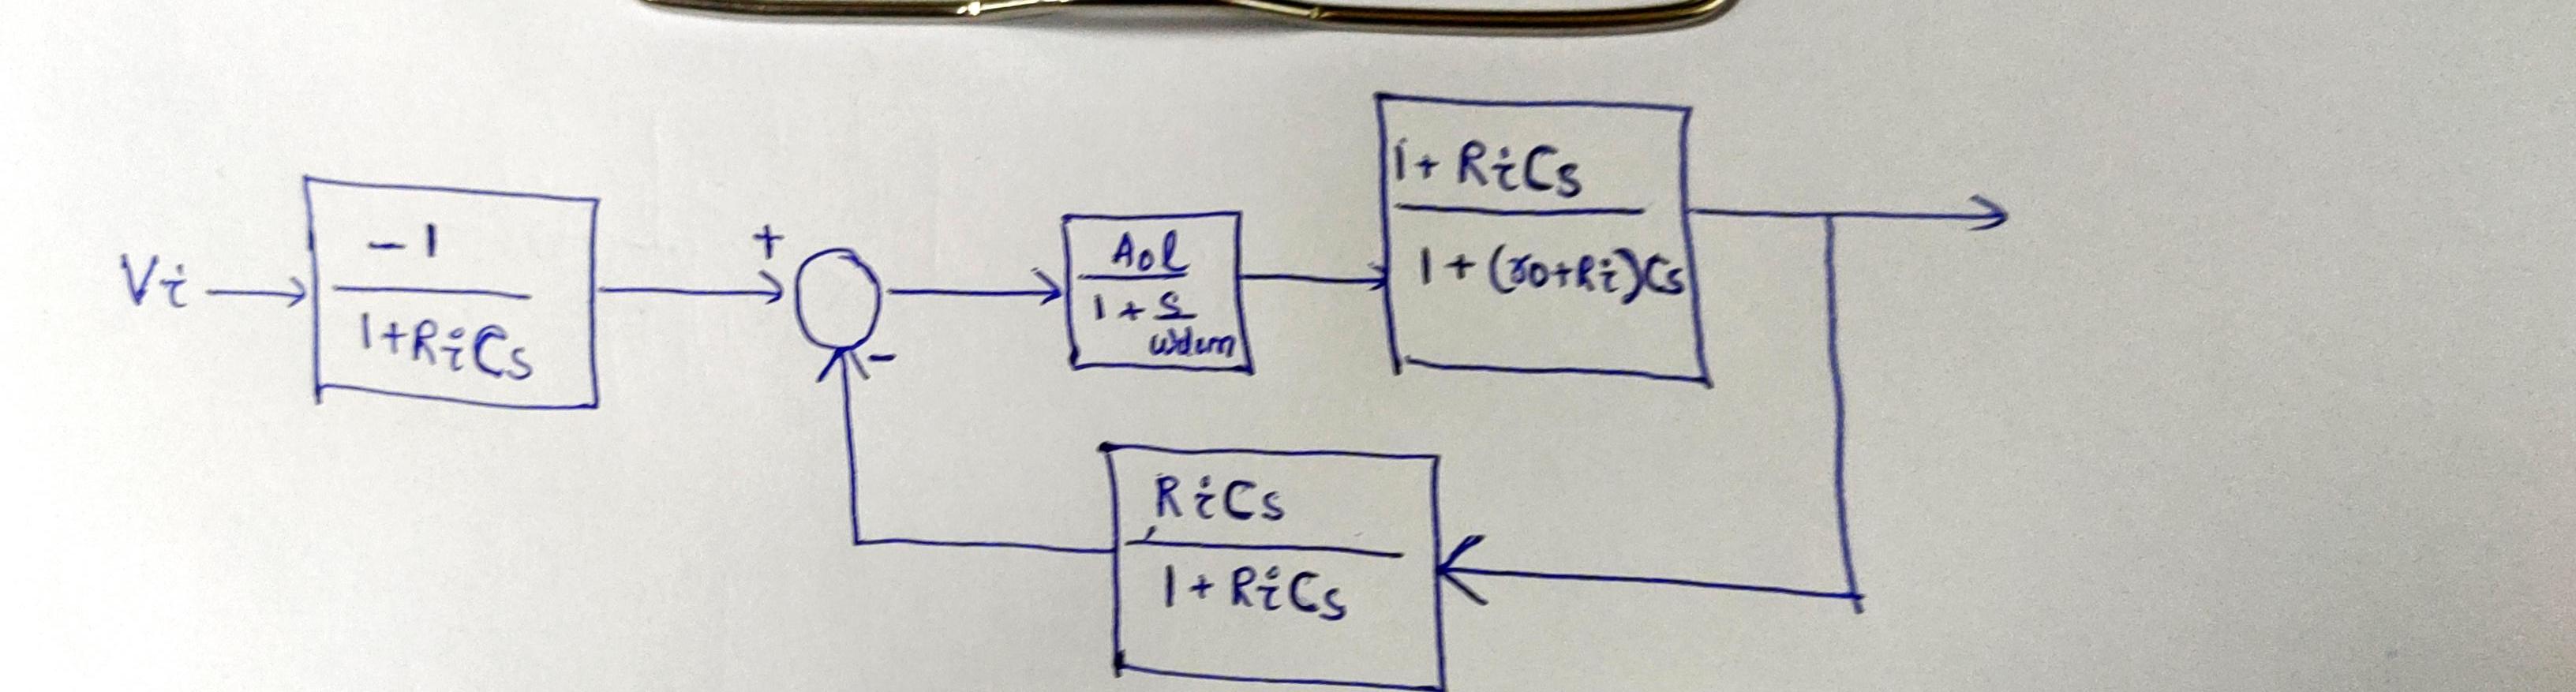 Vi
-1
1+RiCs
+
-
Aol
1 + s
wdom
1 + RiCs
1 + (ro+Ri)Cs
RiCs
1 + RiCs